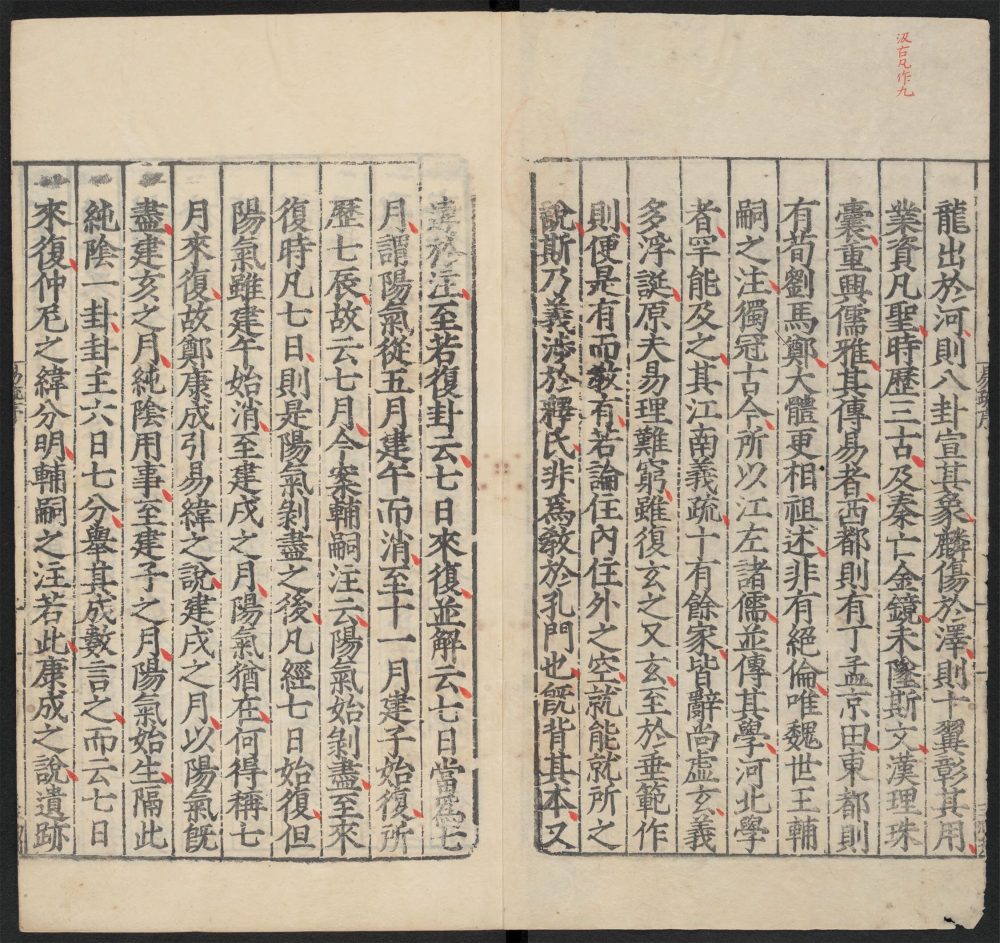 汲古凡作九
龍出於河則八卦宣其象麟傷於澤則十翼彰其用
業資凡聖時歷三古及秦亡金鏡未墜斯文漢理珠
囊重興儒雅其傳易者西都則有丁孟京田東都則
有荀劉馬鄭大體更相祖述非有絕倫唯魏世王輔
嗣之注獨冠古今所以江左諸儒並傳其學河北學
者罕能及之其江南義疏十有餘家皆辭尚虛玄義
多浮誕原夫易理難窮雖復玄之又玄至於垂範作
則便是有而教有若論住內住外之空就能就所之
說斯乃義涉於釋氏非爲敎於孔門也旣背其本又
違於注至若復卦云七日來復並解云七日當爲七
月謂陽氣從五月建午而消至十一月建子始復所
歷七辰故云七月今案輔嗣注云陽氣始剝盡至來
復時凡七日則是陽氣剝盡之後凡經七日始復但
陽氣雖建午始消至建戌之月陽氣猶在何得稱七
月來復故鄭康成引易緯之說建戌之月以陽氣旣
盡建亥之月純陰用事至建子之月陽氣始生隔此
純陰一卦卦主六日七分舉其成數言之而云七日
來復仲尼之緯分明輔嗣之注若此康成之說遺跡